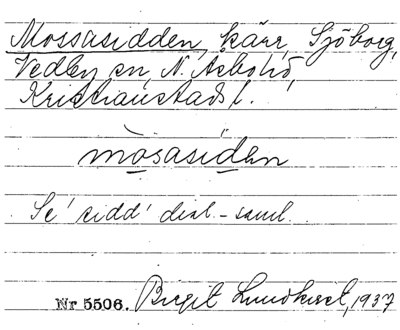 Mossasidden, kärr, Sjöborg,
Vedby sn, N. Åsbo hd,
Kristianstads l.
mòsasíden
Se 'sidd' dial.-saml.
Nr 5506. Birgit Lundkvist, 1937